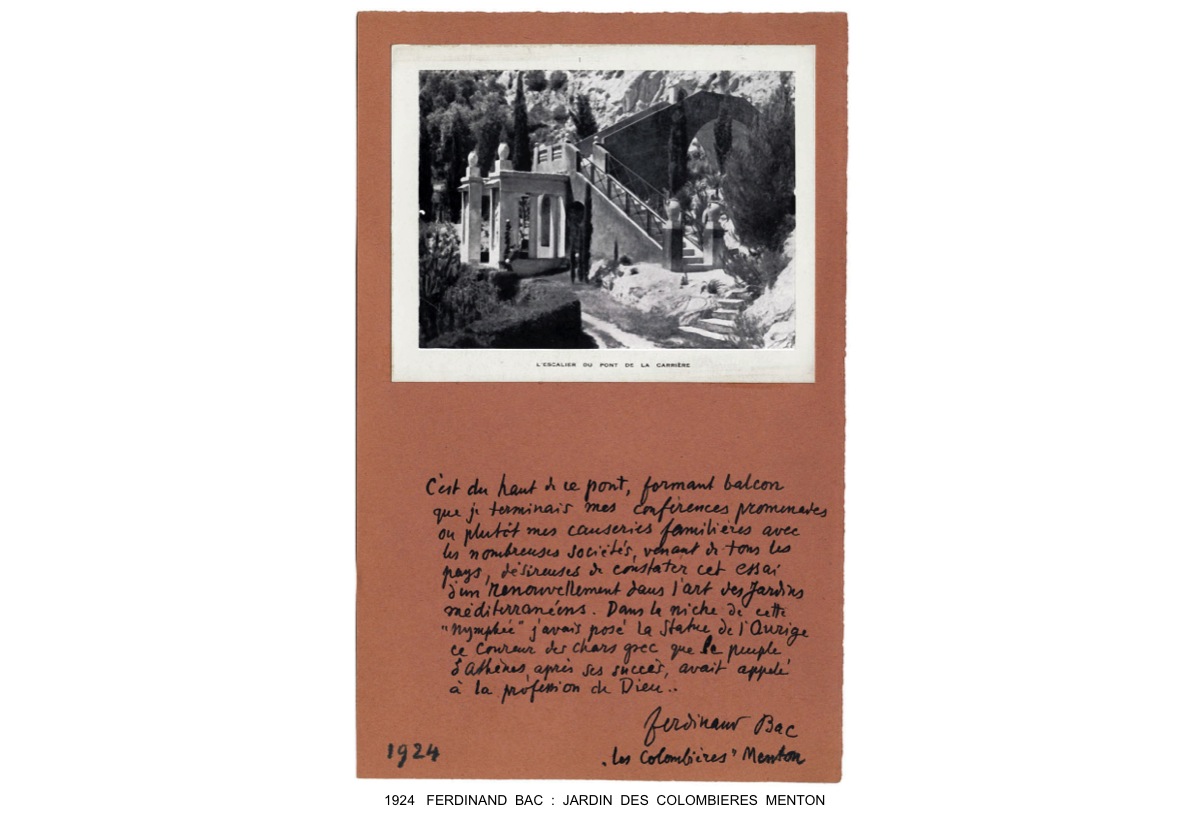 L'ESCALIER DU PONT DE LA CARRIÈRE
C'est du haut de ce pont, formant balcon
que je terminais mes conférences promenades
ou plutôt mes causeries familières avec
les nombreuses sociétés, venant de tous les
pays, désireuses de constater cet essai
d'un Renouvellement dans l'art des Jardins
méditerranéens. Dans la niche de cette
"Nymphée" j'avais posé la Statue de l'Aurige
ce Coureur des chars grec que le peuple
d'Athènes, après ses succès, avait appelé
à la profession de Dieu..
Ferdinand Bac
"les Colombières" Menton
1924
1924 FERDINAND BAC : JARDIN DES COLOMBIERES MENTON